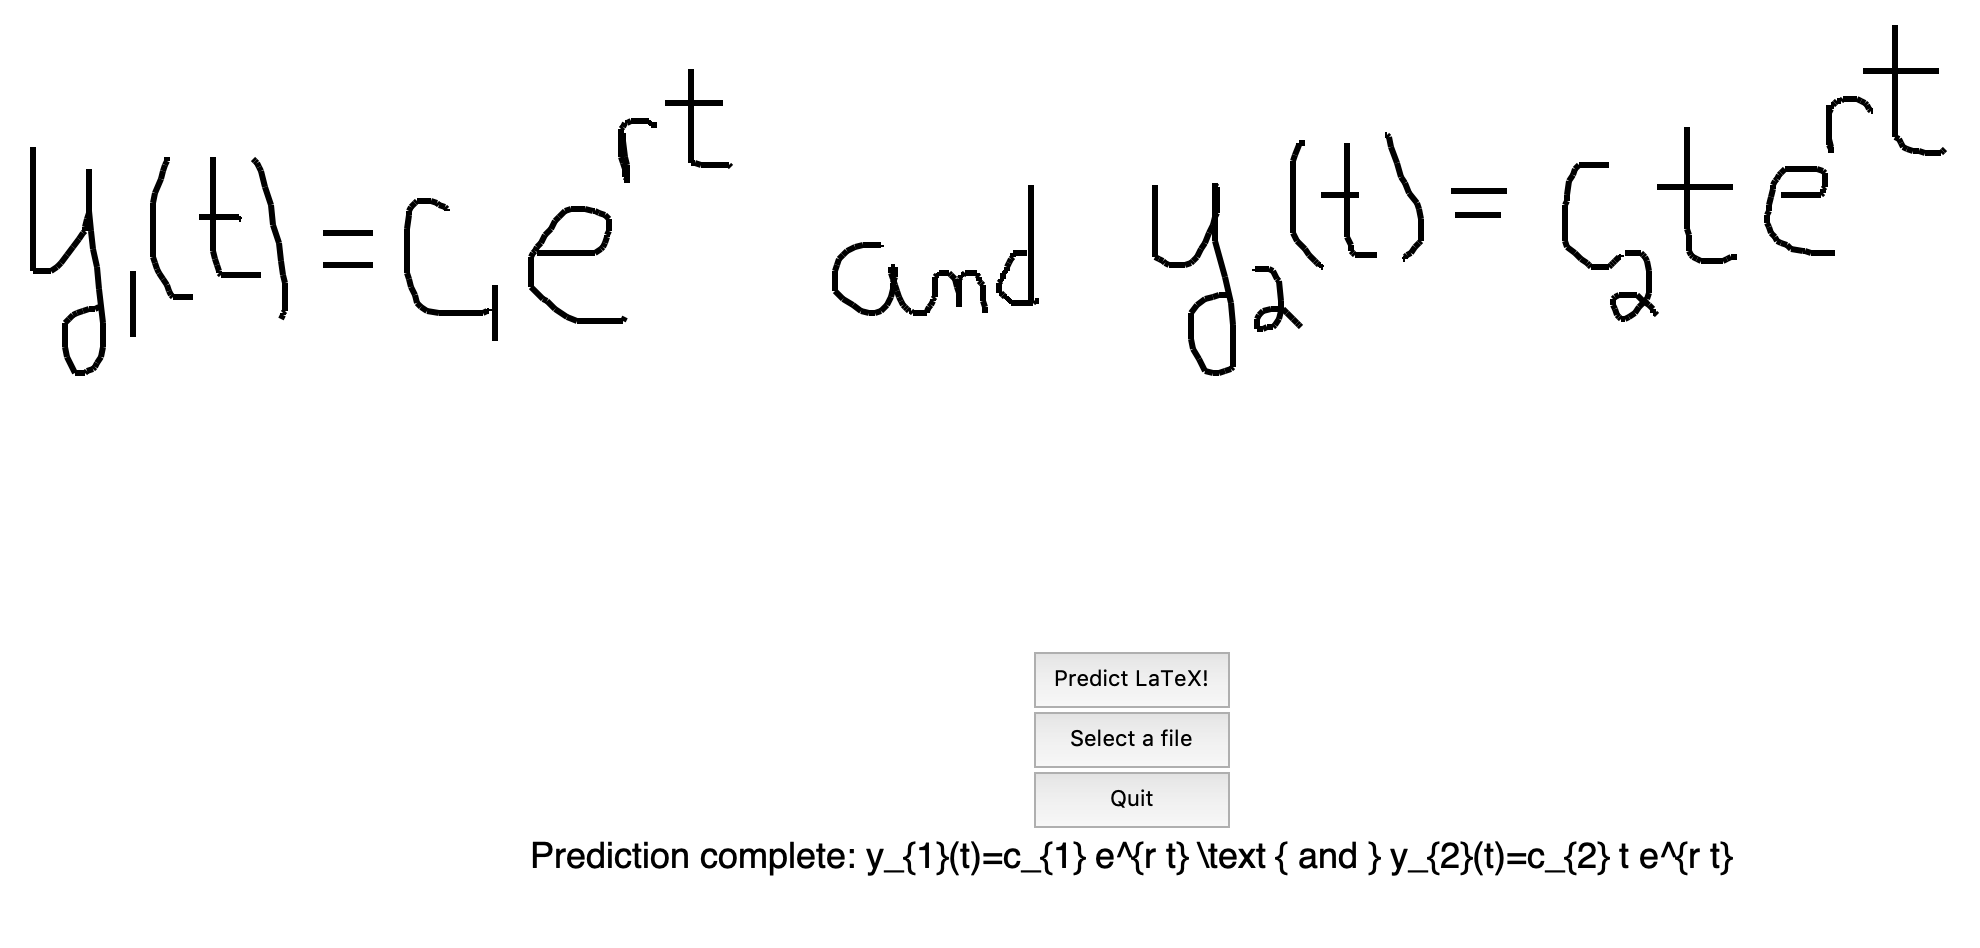 y₁(t)=c₁e^{rt} and y₂(t)=c₂te^{rt}
Predict LaTeX!
Select a file
Quit
Prediction complete: y_{1}(t)=c_{1} e^{r t} \text { and } y_{2}(t)=c_{2} t e^{r t}